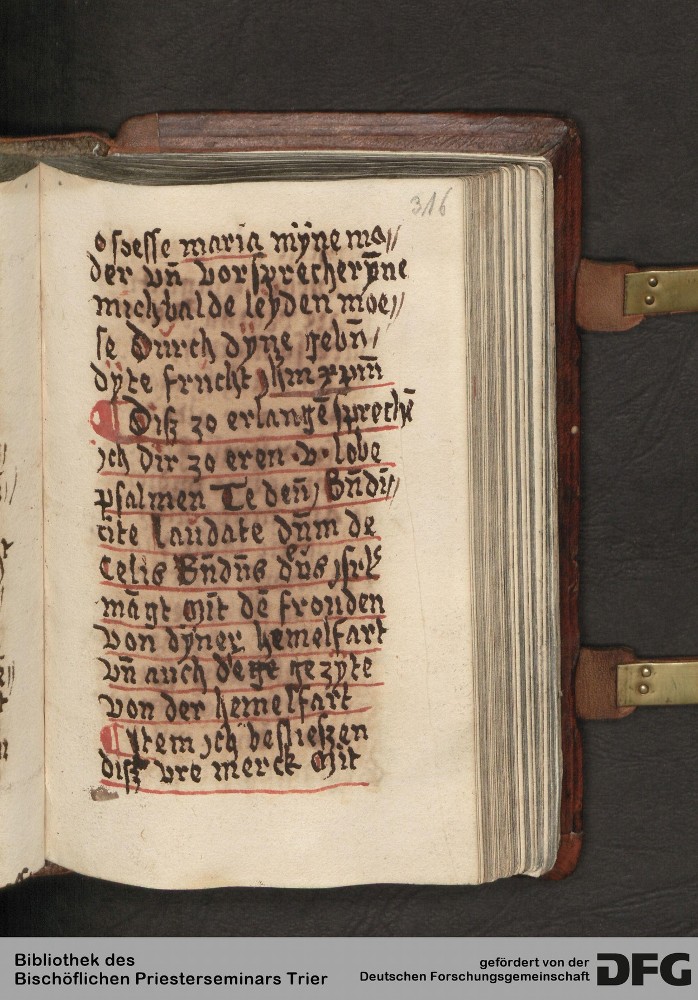 316
o soesse maria mÿne mo//
der vn̄ vorsprecherÿne
mich balde leyden moe//
se durch dÿne gebn̄/
dÿte frucht Jhm xp̄m̄
Disz zo erlangē sprechē
ich dir zo eren .v. lobe
psalmen Te deū, Bn̄di//
cite laudate dn̄m de
Celis Bn̄dūs dn̄s isrl
mit dē frouden
von dÿner hemelfart
vn̄ auch gezÿte
von der hemelfart
Item ich besliessen
disz vre merck mit
Bibliothek des
Bischöflichen Priesterseminars Trier
gefördert von der
Deutschen Forschungsgemeinschaft DFG